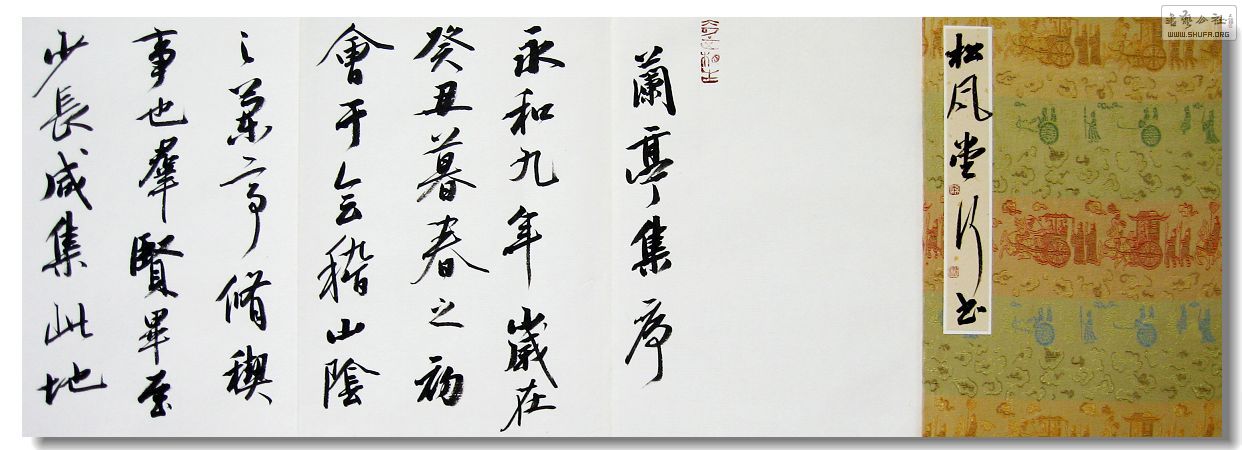 松风堂行书
蘭亭集序
永和九年歲在
癸丑暮春之初
會于会稽山陰
之蘭亭脩稧
事也羣賢畢至
少長咸集此地
书艺公社
WWW.SHUFA.ORG